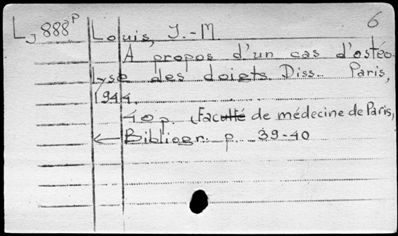 LJ 888P
6
Louis, J.-M.
A propos d'un cas d'ostéo
lyse des doigts. Diss. Paris,
1944.
40 p. (Faculté de médecine de Paris,
← Bibliogr. p. 39-40